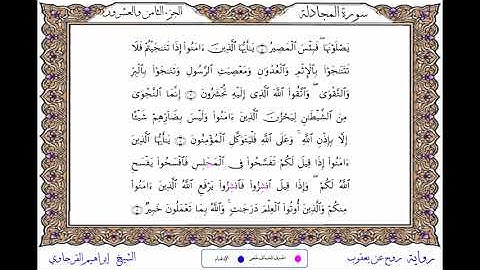 سورة المجادلة
الجزء الثامن والعشرون
يَصْلَوْنَهَا ۖ فَبِئْسَ ٱلْمَصِيرُ يَـٰٓأَيُّهَا ٱلَّذِينَ ءَامَنُوٓا۟ إِذَا تَنَـٰجَيْتُمْ فَلَا
تَتَنَـٰجَوْا۟ بِٱلْإِثْمِ وَٱلْعُدْوَٰنِ وَمَعْصِيَتِ ٱلرَّسُولِ وَتَنَـٰجَوْا۟ بِٱلْبِرِّ
وَٱلتَّقْوَىٰ ۖ وَٱتَّقُوا۟ ٱللَّهَ ٱلَّذِىٓ إِلَيْهِ تُحْشَرُونَ إِنَّمَا ٱلنَّجْوَىٰ
مِنَ ٱلشَّيْطَـٰنِ لِيَحْزُنَ ٱلَّذِينَ ءَامَنُوا۟ وَلَيْسَ بِضَآرِّهِمْ شَيْـًٔا
إِلَّا بِإِذْنِ ٱللَّهِ ۚ وَعَلَى ٱللَّهِ فَلْيَتَوَكَّلِ ٱلْمُؤْمِنُونَ يَـٰٓأَيُّهَا ٱلَّذِينَ
ءَامَنُوٓا۟ إِذَا قِيلَ لَكُمْ تَفَسَّحُوا۟ فِى ٱلْمَجْلِسِ فَٱفْسَحُوا۟ يَفْسَحِ
ٱللَّهُ لَكُمْ ۖ وَإِذَا قِيلَ ٱنشِزُوا۟ فَٱنشِزُوا۟ يَرْفَعِ ٱللَّهُ ٱلَّذِينَ ءَامَنُوا۟
مِنكُمْ وَٱلَّذِينَ أُوتُوا۟ ٱلْعِلْمَ دَرَجَـٰتٍ ۚ وَٱللَّهُ بِمَا تَعْمَلُونَ خَبِيرٌ
رواية روح عن يعقوب
الإدغام
الشيخ إبراهيم الفرجاوي